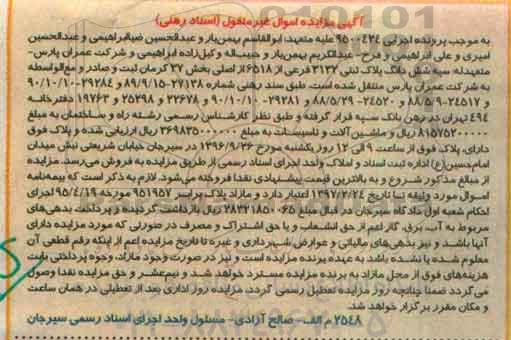 آگهی مزایده اموال غیرمنقول (اسناد رهنی)
به موجب پرونده اجرایی ۹۵۰۰۴۲۴ علیه متعهد: ابوالقاسم بهمن‌یار و عبدالحسین ضیاابراهیمی و عبدالحسین
امیری و علی ابراهیمی و فرح- عبدالکریم بهمن‌یار و حبیب‌اله وکیل‌زاده ابراهیمی و شرکت عمران پارس-
متعهدله: سپه شش دانگ پلاک ثبتی ۳۱۳۲ فرعی از ۶۵۱۸ اصلی بخش ۳۷ کرمان ثبت و صادر و مع‌الواسطه
به شرکت عمران پارس منتقل شده است. طبق سند رهنی شماره ۲۷۱۳۸-۸۹/۹/۱۵ و ۲۹۲۸۴-۹۰/۱۰/۱۰
و ۲۴۵۱۷-۸۸/۵/۹ و ۲۴۵۲۰-۸۸/۵/۲۹ و ۲۹۲۸۱-۹۰/۱۰/۱۰ و ۲۲۶۷۸ و ۲۵۲۹۸ و ۱۹۷۶۳ دفترخانه
۴۹۴ تهران در رهن بانک سپه قرار گرفته و طبق نظر کارشناس رسمی رشته راه و ساختمان به مبلغ
۸۱۵۷۵۲۰۰۰۰۰ ریال و ماشین آلات و تاسیسات به مبلغ ۳۶۹۸۳۵۰۰۰۰۰۰ ریال ارزیابی شده و پلاک فوق
دارای، پلاک فوق از ساعت ۹ الی ۱۲ روز یکشنبه مورخ ۱۳۹۶/۹/۲۶ در سیرجان خیابان شریعتی نبش میدان
امام حسین(ع) اداره ثبت اسناد و املاک واحد اجرای اسناد رسمی از طریق مزایده به فروش می‌رسد. مزایده
از مبالغ مذکور شروع و به بالاترین قیمت پیشنهادی نقدا فروخته می‌شود. لازم به ذکر است که بیمه‌نامه
اموال مورد وثیقه تا تاریخ ۱۳۹۷/۲/۲۴ اعتبار دارد و مازاد پلاک برابر ۹۵۱۹۵۷ مورخه ۹۵/۴/۱۹ اجرای
احکام شعبه اول دادگاه سیرجان در قبال مبلغ ۲۸۳۲۱۸۵۰۰۶۵ ریال بازداشت گردیده و پرداخت بدهی‌های
مربوط به آب، برق، گاز اعم از حق انشعاب و یا حق اشتراک و مصرف در صورتی که مورد مزایده دارای
آنها باشد و نیز بدهی‌های مالیاتی و عوارض شهرداری و غیره تا تاریخ مزایده اعم از اینکه رقم قطعی آن
معلوم شده یا نشده باشد به عهده برنده مزایده است و نیز در صورت وجود مازاد، وجوه پرداختی بابت
هزینه‌های فوق از محل مازاد به برنده مزایده مسترد خواهد شد و نیم‌عشر و حق مزایده نقدا وصول
می‌گردد ضمنا چنانچه روز مزایده تعطیل رسمی گردد، مزایده روز اداری بعد از تعطیلی در همان ساعت
و مکان مقرر برگزار خواهد شد.
۲۵۴۸ م الف- صالح آزادی- مسئول واحد اجرای اسناد رسمی سیرجان